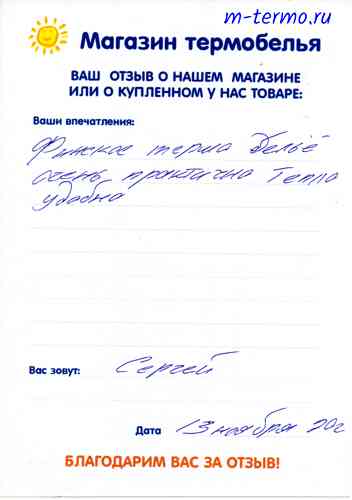 m-termo.ru
Магазин термобелья
ВАШ ОТЗЫВ О НАШЕМ МАГАЗИНЕ
ИЛИ О КУПЛЕННОМ У НАС ТОВАРЕ:
Ваши впечатления:
Финское терма Бельё
очень практична Тепла
удобна
Вас зовут: Сергей
Дата 13 ноября 20г
БЛАГОДАРИМ ВАС ЗА ОТЗЫВ!